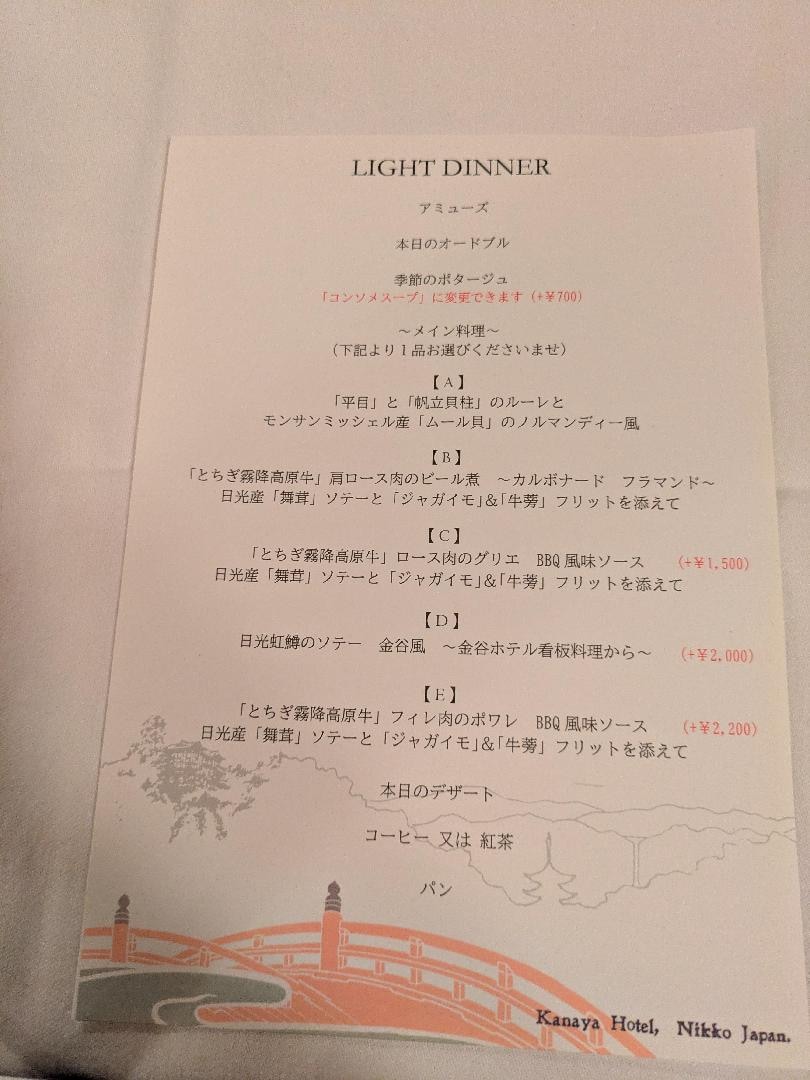 LIGHT DINNER
アミューズ
本日のオードブル
季節のポタージュ
「コンソメスープ」に変更できます (+¥700)
～メイン料理～
（下記より１品お選びくださいませ）
【A】
「平目」と「帆立貝柱」のルーレと
モンサンミッシェル産「ムール貝」のノルマンディー風
【B】
「とちぎ霧降高原牛」肩ロース肉のビール煮　～カルボナード　フラマンド～
日光産「舞茸」ソテーと「ジャガイモ」&「牛蒡」フリットを添えて
【C】
「とちぎ霧降高原牛」ロース肉のグリエ　BBQ風味ソース　(+¥1,500)
日光産「舞茸」ソテーと「ジャガイモ」&「牛蒡」フリットを添えて
【D】
日光虹鱒のソテー　金谷風　～金谷ホテル看板料理から～　(+¥2,000)
【E】
「とちぎ霧降高原牛」フィレ肉のポワレ　BBQ風味ソース　(+¥2,200)
日光産「舞茸」ソテーと「ジャガイモ」&「牛蒡」フリットを添えて
本日のデザート
コーヒー 又は 紅茶
パン
Kanaya Hotel, Nikko Japan.